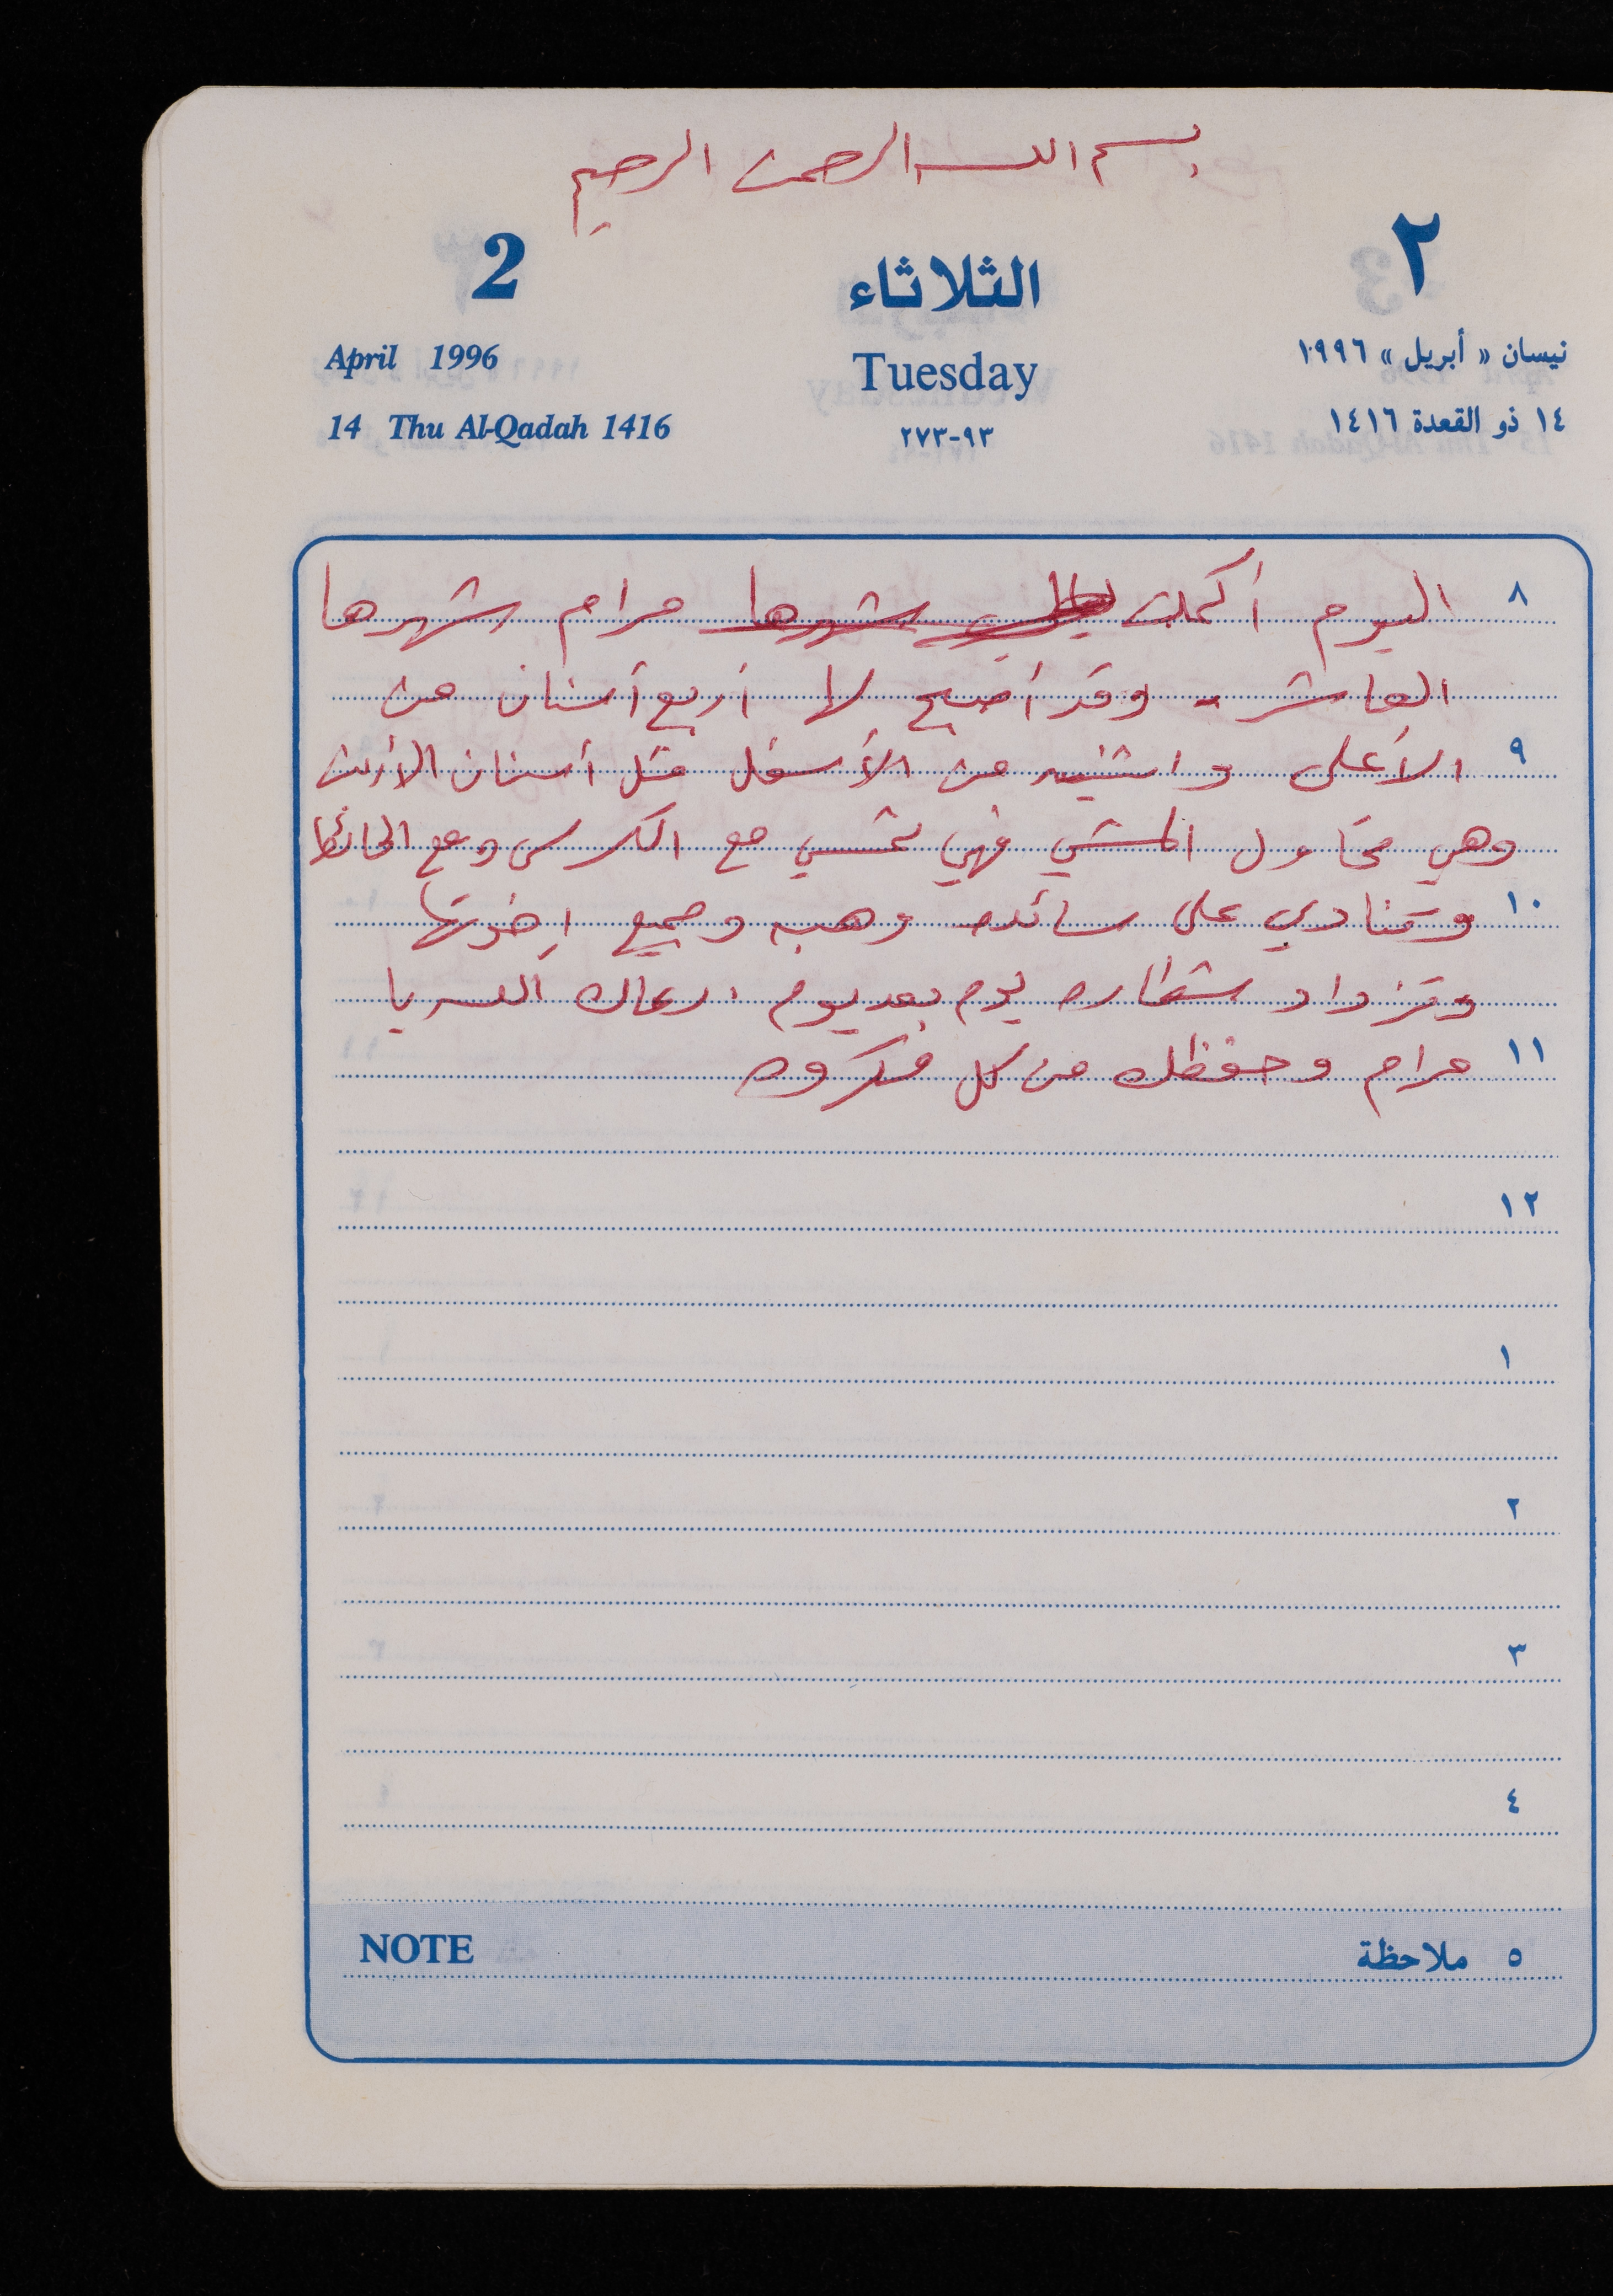 بسم الله الرحمن الرحيم
2 الثلاثاء ٢
April 1996 Tuesday نيسان « أبريل » ١٩٩٦
14 Thu Al-Qadah 1416 ٩٣-٢٧٣ ١٤ ذو القعدة ١٤١٦
٨ اليوم أكملت شهرها مرام شهرها
العاشر - وقد أصبح لها أربع أسنان من
٩ الأعلى واثنين من الأسفل مثل أسنان الأرنب
وهي تحاول المشي فهي تمشي مع الكرسي ومع الحائط
١٠ وتنادي على سائده وهبه وجميع إخوتها
وتزداد شطاره يوم بعد يوم رعاك الله يا
١١ مرام وحفظك من كل مكروه
١٢
١
٢
٣
٤
NOTE ٥ ملاحظة